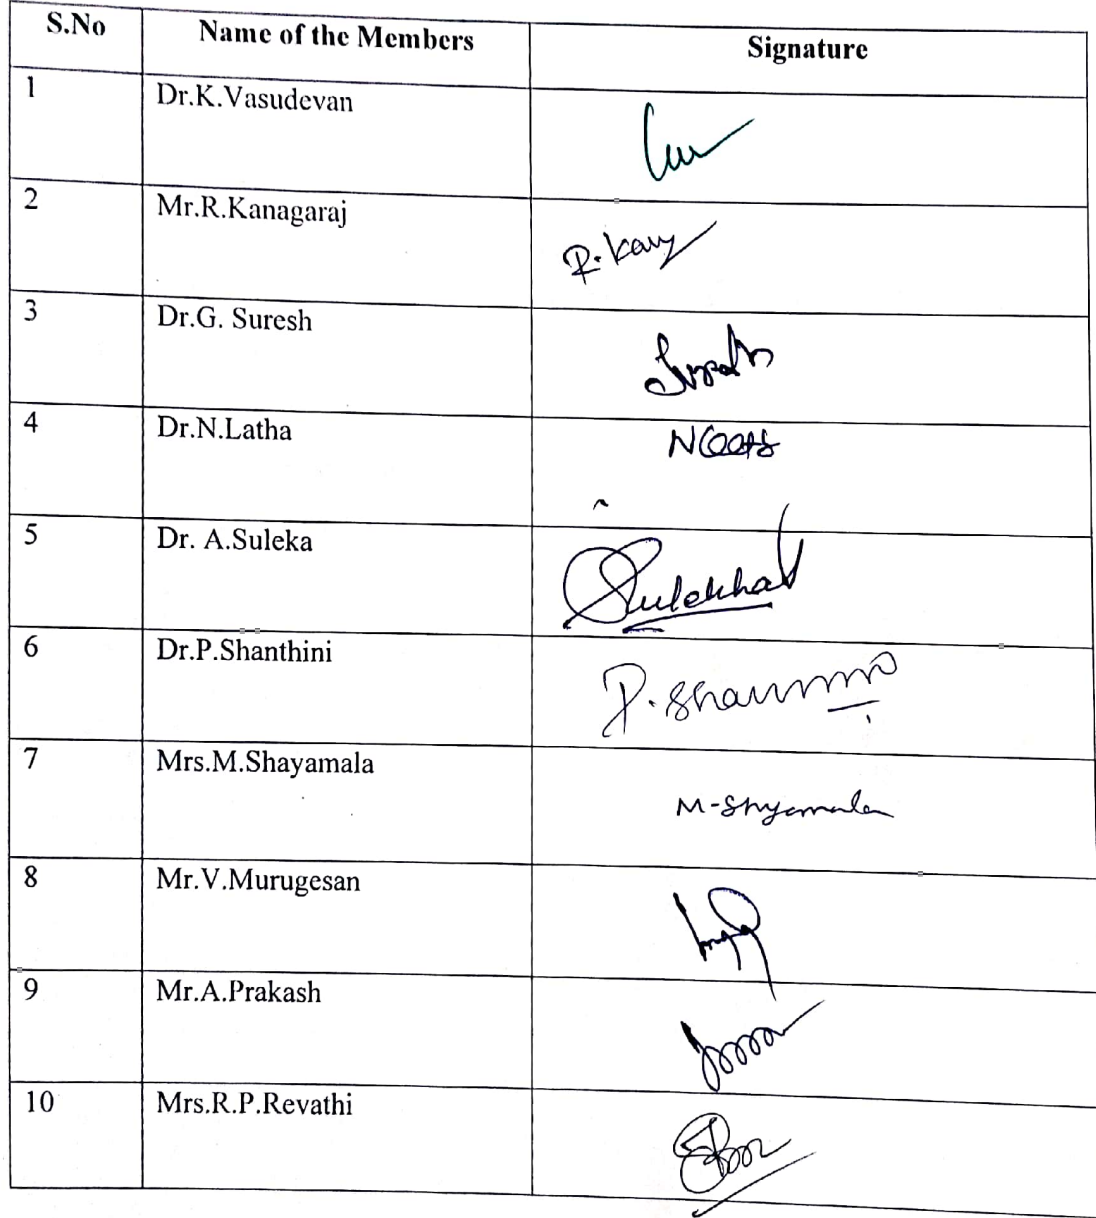 S.No Name of the Members Signature
1 Dr.K.Vasudevan
2 Mr.R.Kanagaraj R.Kang
3 Dr.G. Suresh Suresh
4 Dr.N.Latha
5 Dr. A.Suleka Sulekha
6 Dr.P.Shanthini
7 Mrs.M.Shayamala M-Shyamala
8 Mr.V.Murugesan
9 Mr.A.Prakash
10 Mrs.R.P.Revathi